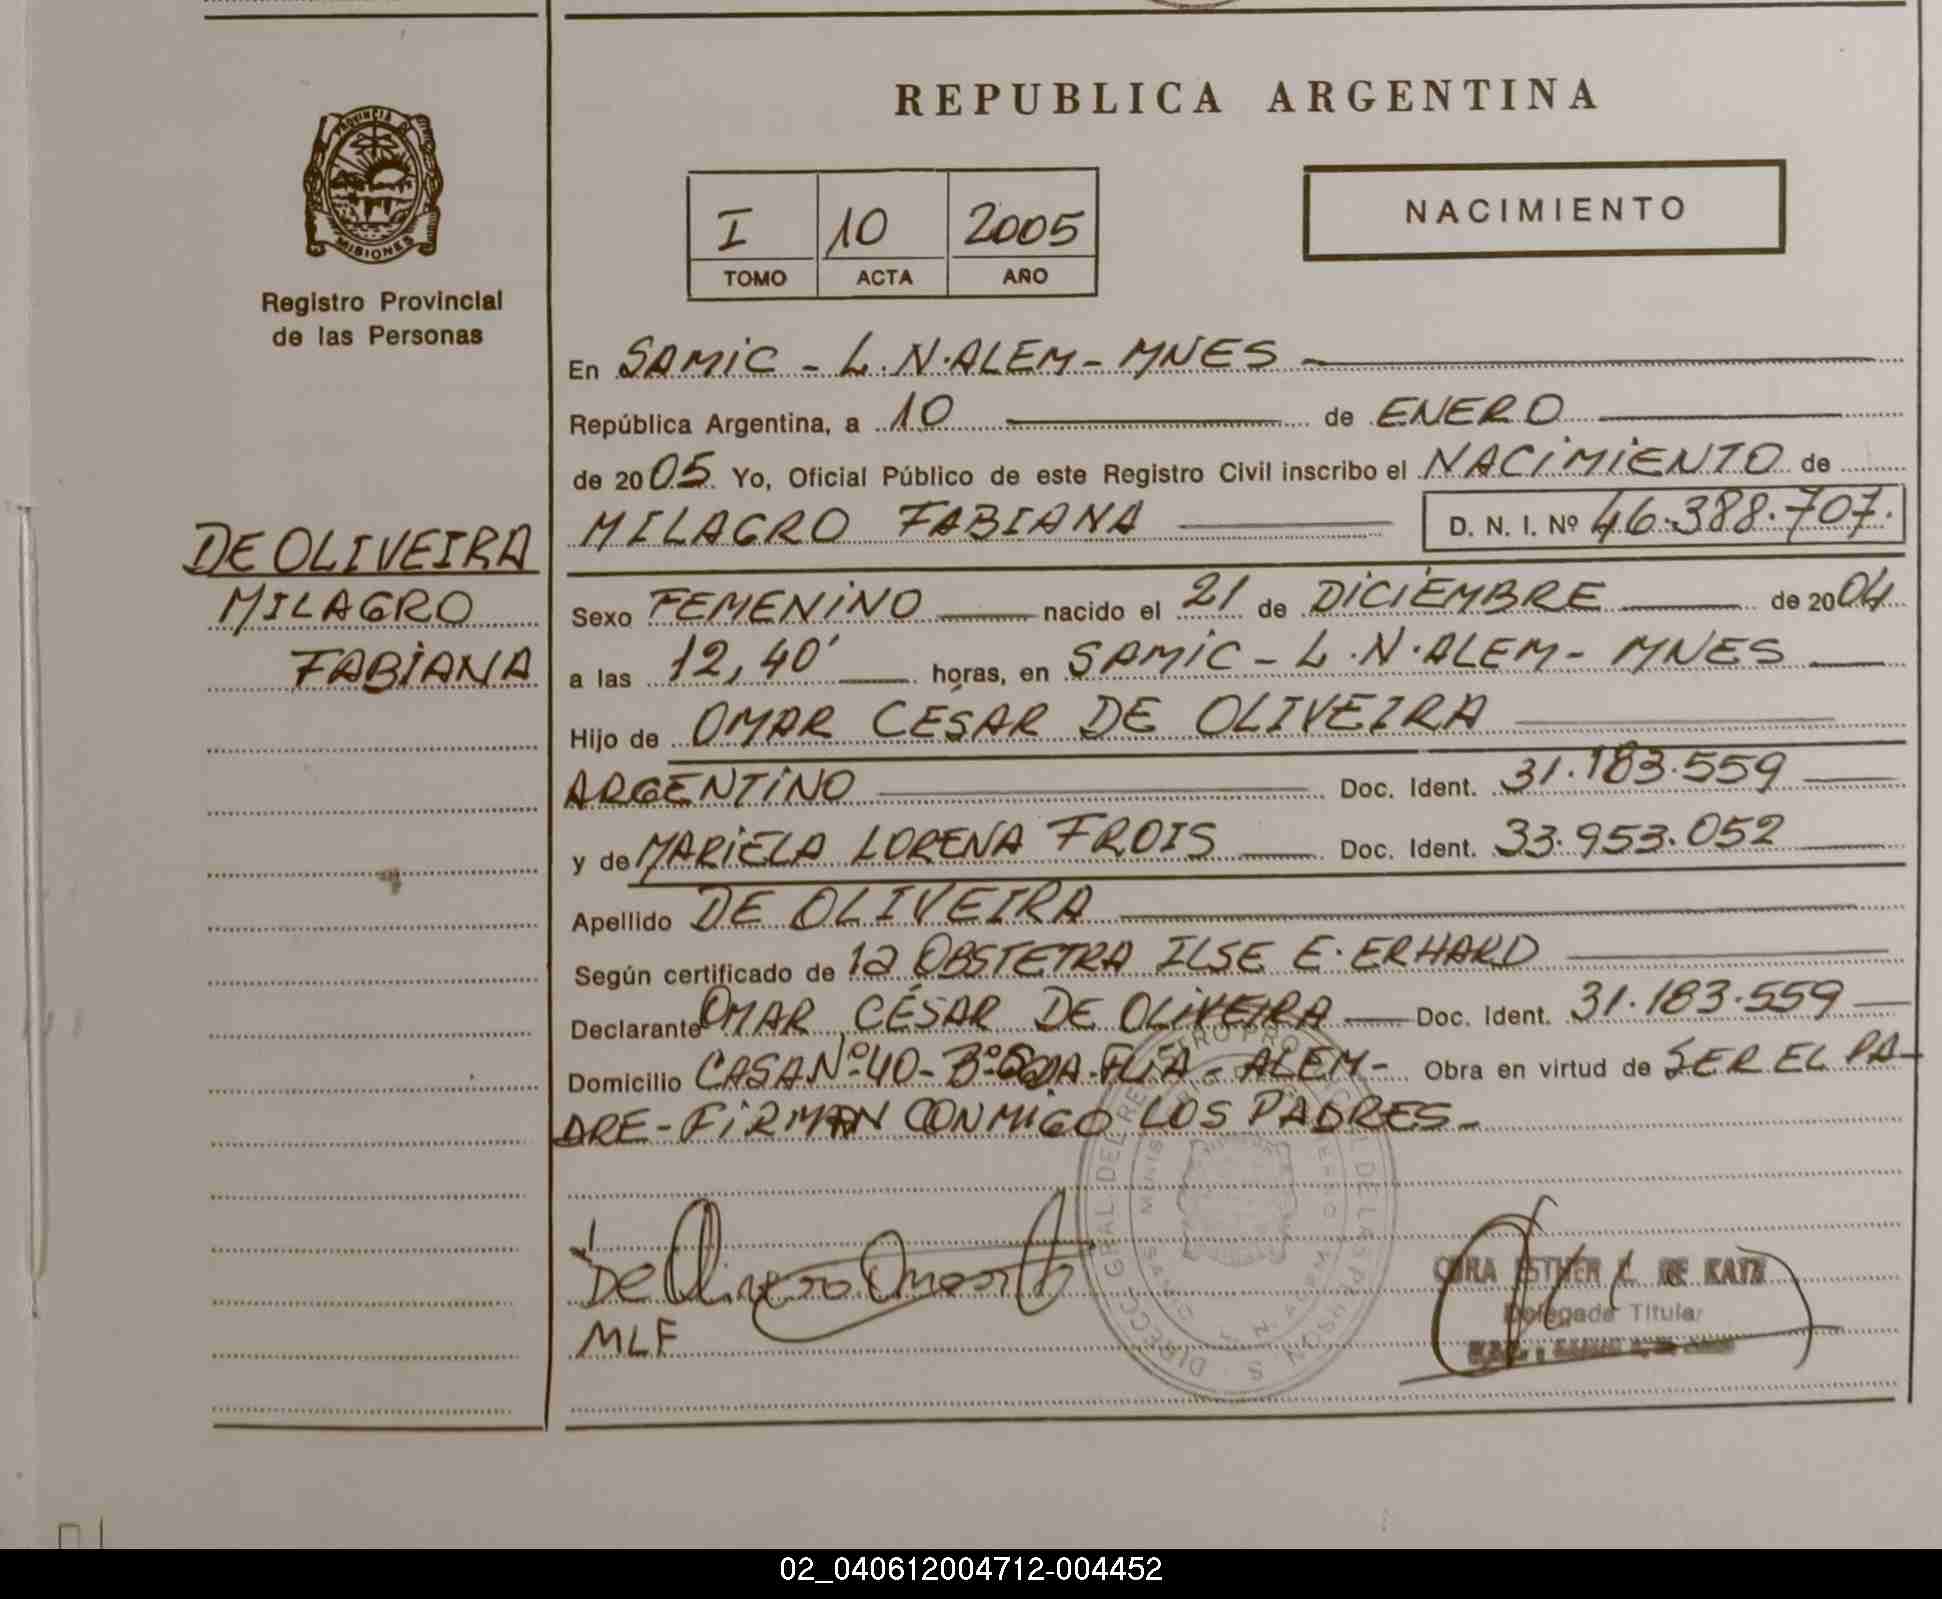 PROVINCIA DE
MISIONES
Registro Provincial
de las Personas
DE OLIVEIRA
MILAGRO
FABIANA
REPUBLICA ARGENTINA
I 10 2005
TOMO ACTA AÑO
NACIMIENTO
En SAMIC - L.N.ALEM - MNES -
República Argentina, a 10 de ENERO
de 2005. Yo, Oficial Público de este Registro Civil inscribo el NACIMIENTO de
MILAGRO FABIANA D. N. I. Nº 46.388.707.
Sexo FEMENINO nacido el 21 de DICIEMBRE de 2004
a las 12,40' horas, en SAMIC - L.N.ALEM - MNES
Hijo de OMAR CÉSAR DE OLIVEIRA
ARGENTINO Doc. Ident. 31.183.559
y de MARIELA LORENA FROIS Doc. Ident. 33.953.052
Apellido DE OLIVEIRA
Según certificado de la OBSTETRA ILSE E. ERHARD
Declarante OMAR CÉSAR DE OLIVEIRA Doc. Ident. 31.183.559
Domicilio CASA Nº 40 - Bº SDA. FLIA - ALEM - Obra en virtud de SER EL PA-
DRE - FIRMAN CONMIGO LOS PADRES -
De Oliveira Omar
MLF
ESTHER
DE KATZ
Delegada Titular
02_040612004712-004452